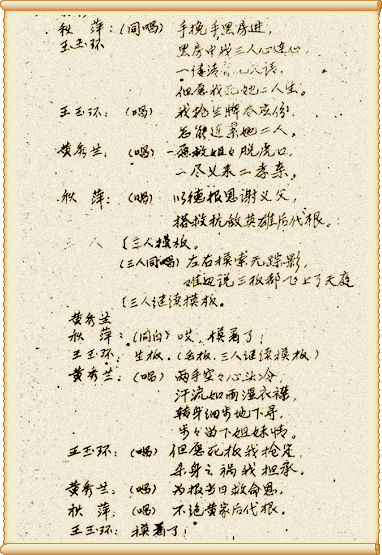 秋萍：(同唱) 手挽手黑房进，
王玉环 黑房中我三人心连心
一
但愿我死她二人生。
王玉环：(唱) 我抢生牌本应份
怎能连累她二人。
黄秀兰：(唱) 一愿救姐姐脱虎口，
二尽义来二孝亲。
秋萍：(唱) 以德报恩谢义父，
搭救抗敌英雄后代根。
三人 〔三人摸板。
(三人同唱) 左右摸索无踪影，
难道说三板都飞上了天庭
〔三人继续摸板。
黄秀兰
秋萍：(同白) 哎，摸着了！
王玉环：生板。(死板，三人继续摸板)
黄秀兰：(唱) 两手空空心头冷，
汗流如雨湿衣襟，
转身细步地下寻，
步步留下姐妹情。
王玉环：(唱) 但愿死板我抢定，
杀身之祸我担承。
黄秀兰：(唱) 为报当日救命恩，
秋萍：(唱) 不绝黄家后代根。
王玉环：摸着了！